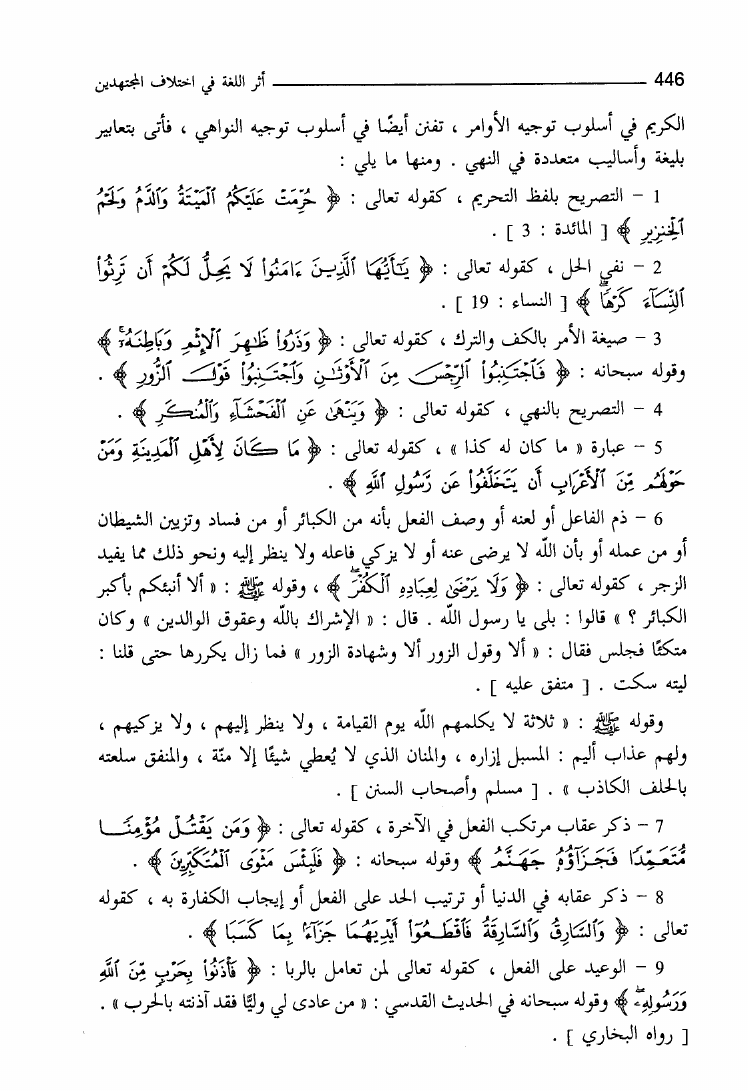 446 ـــــــــــــــــــــــــــــــــــــ أثر اللغة في اختلاف المجتهدين
الكريم في أسلوب توجيه الأوامر ، تفنن أيضًا في أسلوب توجيه النواهي ، فأتى بتعابير
بليغة وأساليب متعددة في النهي . ومنها ما يلي :
1 – التصريح بلفظ التحريم ، كقوله تعالى : ﴿ حُرِّمَتْ عَلَيْكُمُ ٱلْمَيْتَةُ وَٱلدَّمُ وَلَحْمُ
ٱلْخِنزِيرِ ﴾ [ المائدة : 3 ] .
2 – نفي الحل ، كقوله تعالى : ﴿ يَٰٓأَيُّهَا ٱلَّذِينَ ءَامَنُوا۟ لَا يَحِلُّ لَكُمْ أَن تَرِثُوا۟
ٱلنِّسَآءَ كَرْهًاۖ ﴾ [ النساء : 19 ] .
3 – صيغة الأمر بالكف والترك ، كقوله تعالى : ﴿ وَذَرُوا۟ ظَٰهِرَ ٱلْإِثْمِ وَبَاطِنَهُۥٓۚ ﴾
وقوله سبحانه : ﴿ فَٱجْتَنِبُوا۟ ٱلرِّجْسَ مِنَ ٱلْأَوْثَٰنِ وَٱجْتَنِبُوا۟ قَوْلَ ٱلزُّورِ ﴾ .
4 – التصريح بالنهي ، كقوله تعالى : ﴿ وَيَنْهَىٰ عَنِ ٱلْفَحْشَآءِ وَٱلْمُنكَرِ ﴾ .
5 – عبارة « ما كان له كذا » ، كقوله تعالى : ﴿ مَا كَانَ لِأَهْلِ ٱلْمَدِينَةِ وَمَنْ
حَوْلَهُم مِّنَ ٱلْأَعْرَابِ أَن يَتَخَلَّفُوا۟ عَن رَّسُولِ ٱللَّهِ ﴾ .
6 – ذم الفاعل أو لعنه أو وصف الفعل بأنه من الكبائر أو من فساد وتزيين الشيطان
أو من عمله أو بأن اللّه لا يرضى عنه أو لا يزكي فاعله ولا ينظر إليه ونحو ذلك مما يفيد
الزجر ، كقوله تعالى : ﴿ وَلَا يَرْضَىٰ لِعِبَادِهِ ٱلْكُفْرَۖ ﴾ ، وقوله ﷺ : « ألا أنبئكم بأكبر
الكبائر ؟ » قالوا : بلى يا رسول اللّه . قال : « الإشراك باللّه وعقوق الوالدين » وكان
متكئًا فجلس فقال : « ألا وقول الزور ألا وشهادة الزور » فما زال يكررها حتى قلنا :
ليته سكت . [ متفق عليه ] .
وقوله ﷺ : « ثلاثة لا يكلمهم اللّه يوم القيامة ، ولا ينظر إليهم ، ولا يزكيهم ،
ولهم عذاب أليم : المسبل إزاره ، والمنان الذي لا يُعطي شيئًا إلا منّة ، والمنفق سلعته
بالحلف الكاذب » . [ مسلم وأصحاب السنن ] .
7 – ذكر عقاب مرتكب الفعل في الآخرة ، كقوله تعالى : ﴿ وَمَن يَقْتُلْ مُؤْمِنًا
مُّتَعَمِّدًا فَجَزَآؤُهُۥ جَهَنَّمُ ﴾ وقوله سبحانه : ﴿ فَلَبِئْسَ مَثْوَى ٱلْمُتَكَبِّرِينَ ﴾ .
8 – ذكر عقابه في الدنيا أو ترتيب الحد على الفعل أو إيجاب الكفارة به ، كقوله
تعالى : ﴿ وَٱلسَّارِقُ وَٱلسَّارِقَةُ فَٱقْطَعُوٓا۟ أَيْدِيَهُمَا جَزَآءًۢ بِمَا كَسَبَا ﴾ .
9 – الوعيد على الفعل ، كقوله تعالى لمن تعامل بالربا : ﴿ فَأْذَنُوا۟ بِحَرْبٍ مِّنَ ٱللَّهِ
وَرَسُولِهِۦۖ ﴾ وقوله سبحانه في الحديث القدسي : « من عادى لي وليًّا فقد آذنته بالحرب » .
[ رواه البخاري ] .